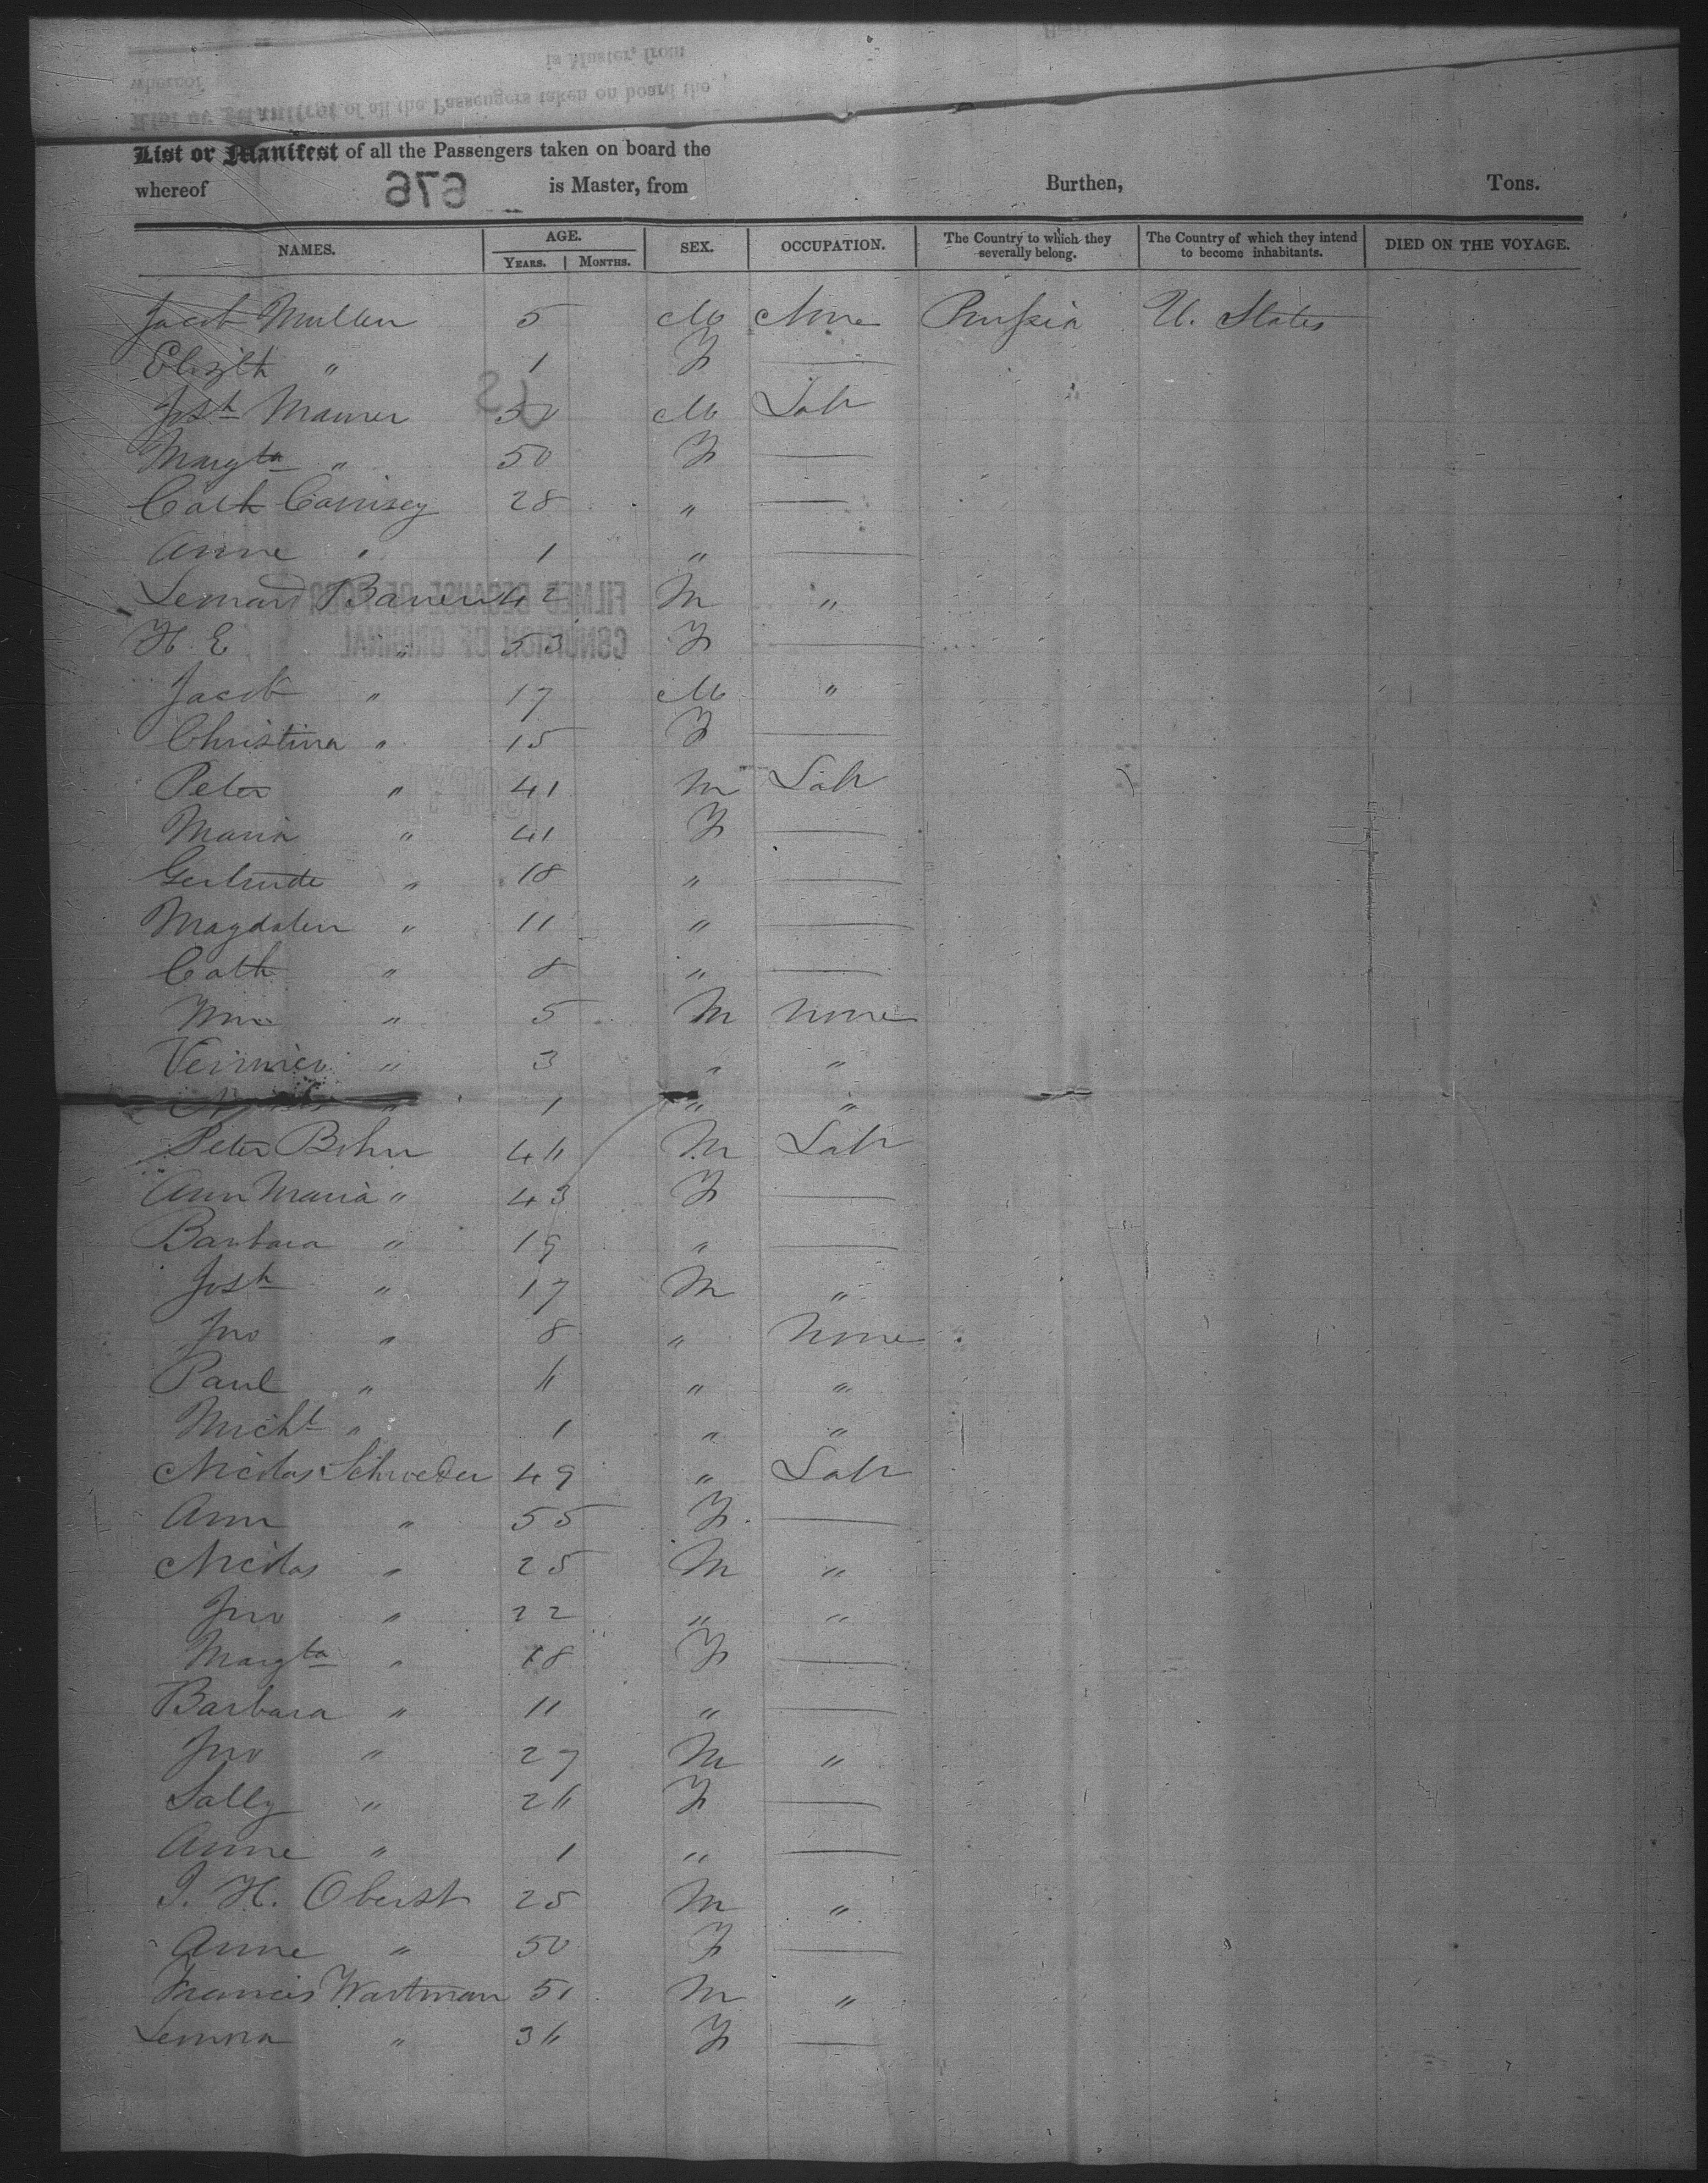 List or Manifest of all the Passengers taken on board the
whereof is Master, from Burthen, Tons.
979
NAMES. AGE. SEX. OCCUPATION. The Country to which they severally belong. The Country of which they intend to become inhabitants. DIED ON THE VOYAGE.
YEARS. MONTHS.
Jacob Muller 5 M None Prussia U. States
Elizth " 1 F —
Josh Maurer 50 M Labr
Margta " 50 F —
Cath 28 " —
Anne " 1 " —
42 M "
H. E " 53 F —
Jacob " 17 M "
Christina " 15 F —
Peter " 41 M Labr
Maria " 41 F —
Gertrude " 18 " —
Magdalen " 11 " —
Cath " 8 " —
Wm " 5 M None
" 3 " "
" 1 " "
Peter Bohn 46 M Labr
Ann Maria " 43 F —
Barbara " 19 " —
Josh " 17 M "
Jno " 8 " None
Paul " 6 " "
Michl " 1 " "
Nicolas Schroeder 49 " Labr
Ann " 55 F —
Nicolas " 25 M "
Jno " 22 " "
Margta " 18 F —
Barbara " 11 " —
Jno " 27 M "
Sally " 26 F —
Anne " 1 " —
J. H. Oberst 25 M "
Anne " 50 F —
Francis Wartman 51 M "
Lenora " 36 F —